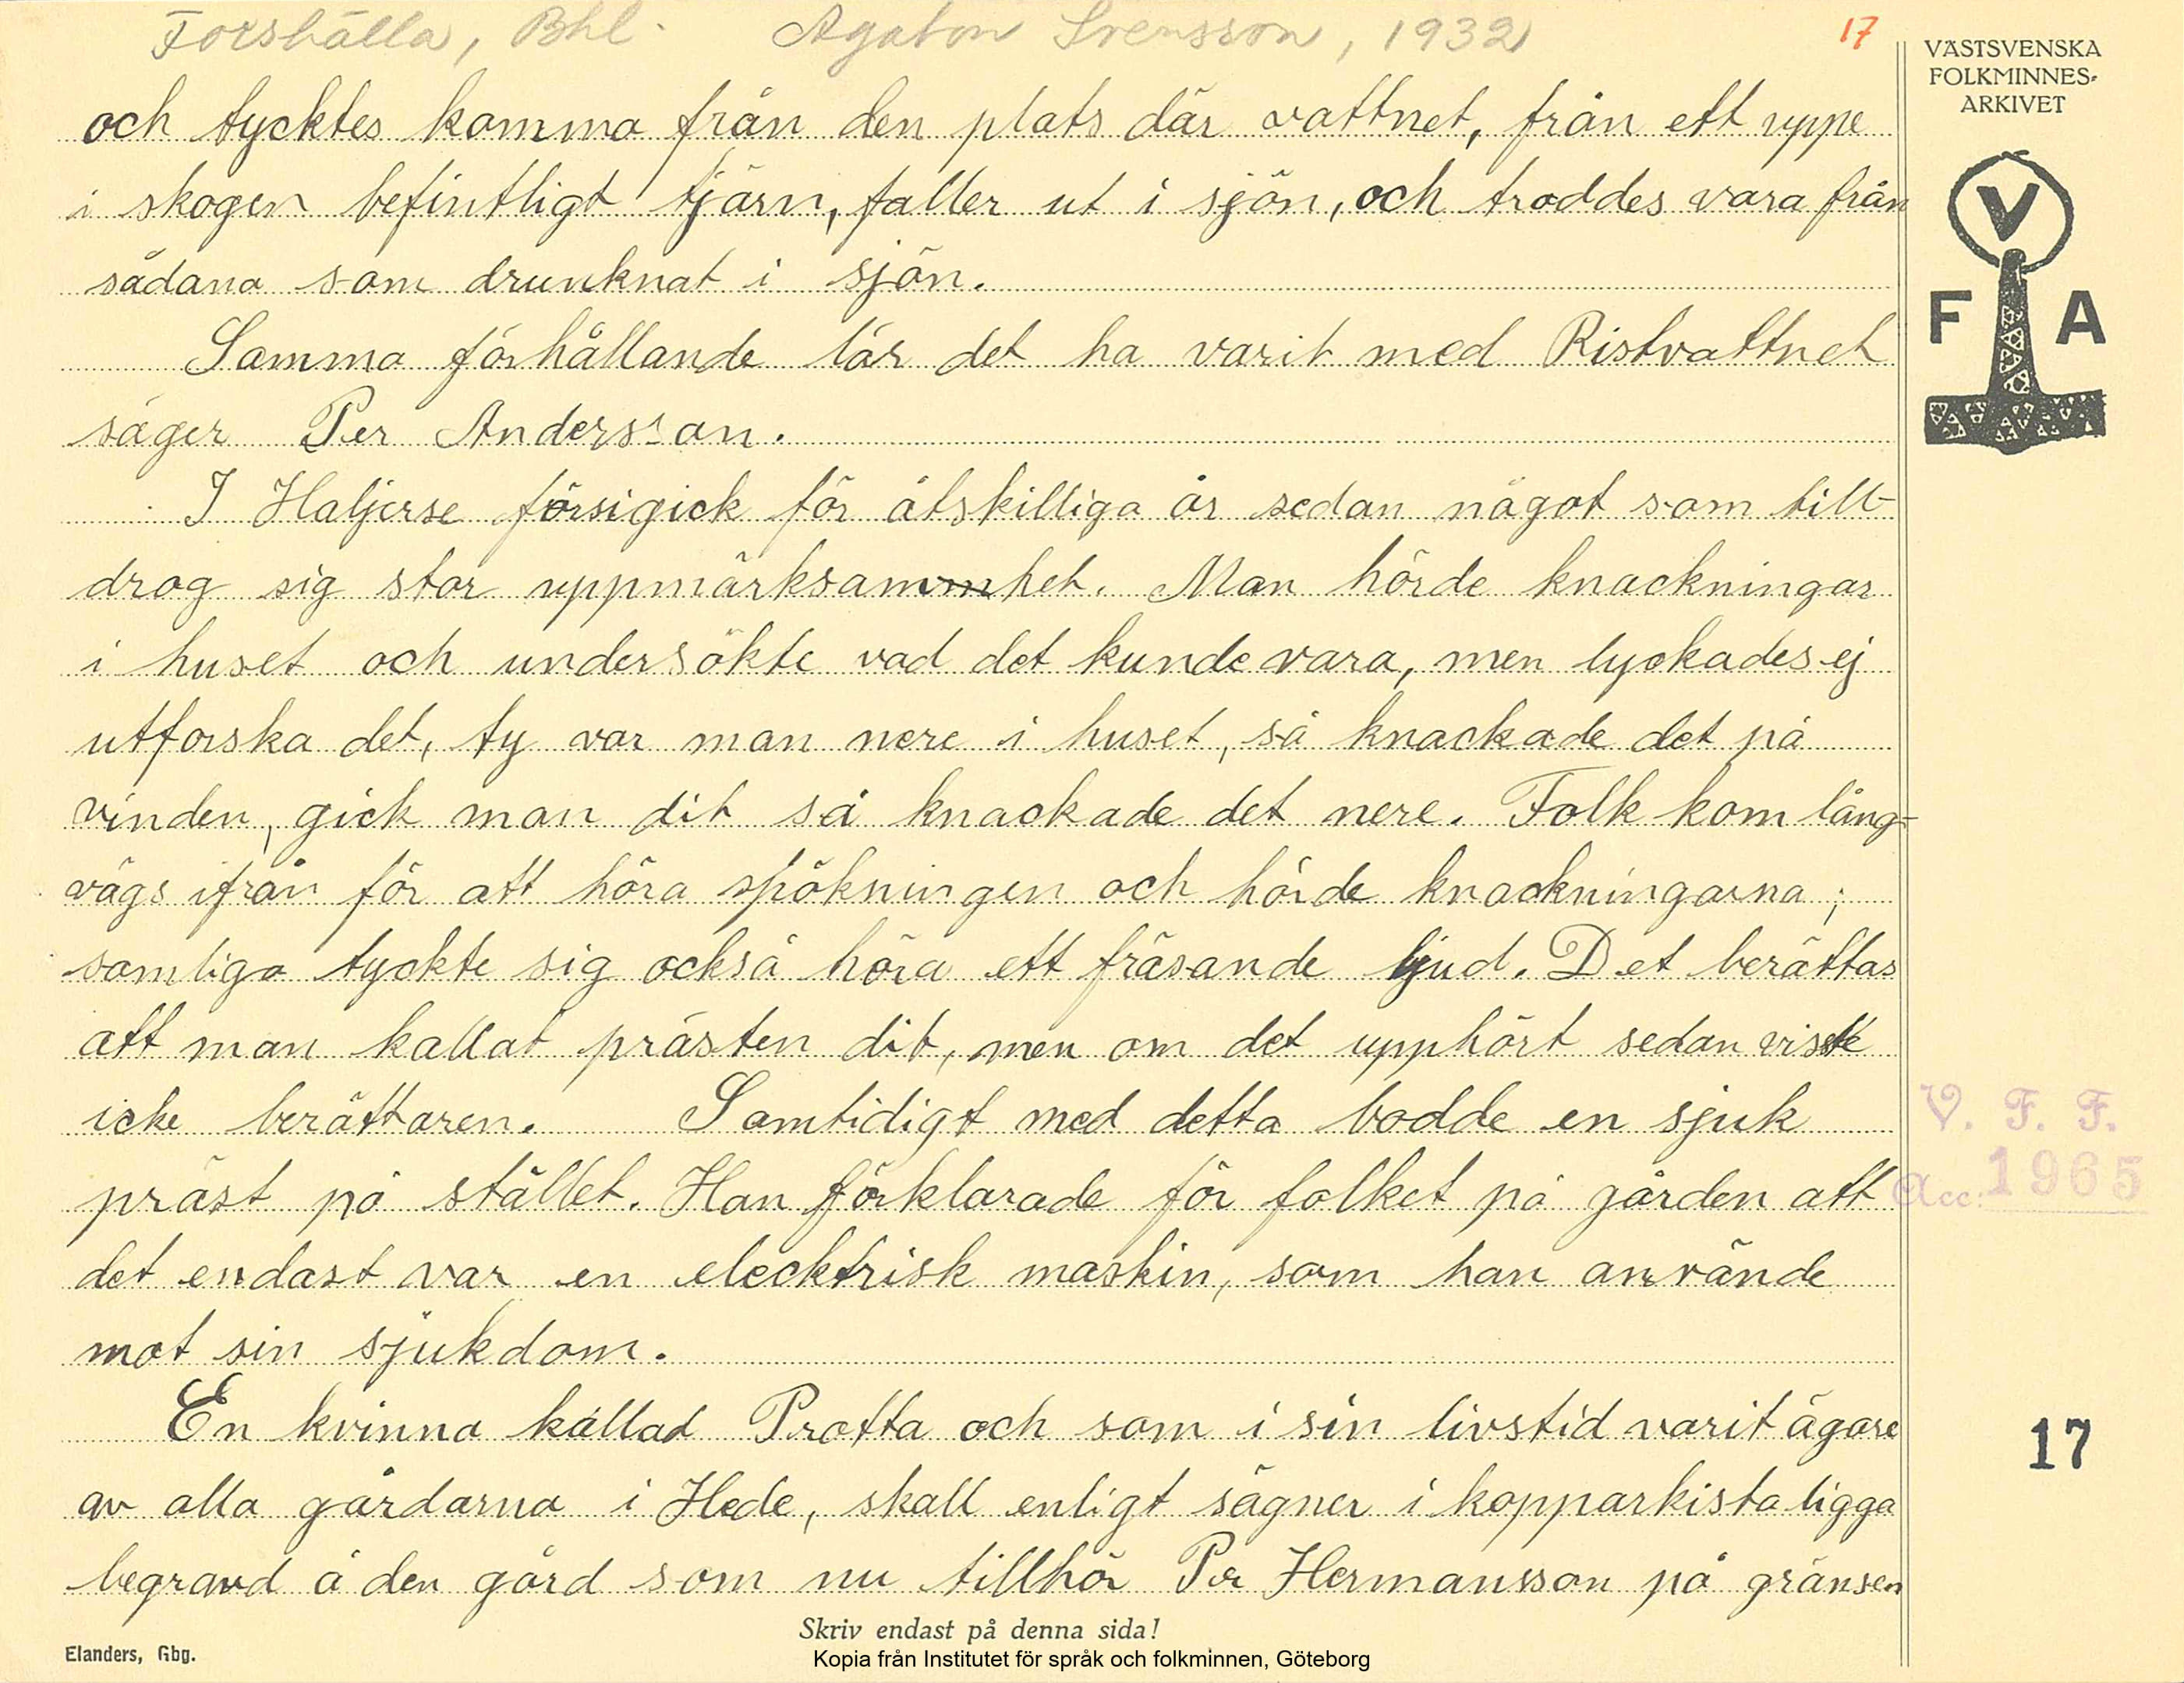 Forshälla, Bhl. Agaton Svensson, 1932
17
VÄSTSVENSKA
FOLKMINNES-
ARKIVET
V
F A
och tycktes komma från den plats där vattnet, från ett uppe
i skogen befintligt tjärn, faller ut i sjön, och troddes vara från
sådana som drunknat i sjön.
Samma förhållande lär det ha varit med Ristvattnet
säger Per Andersson.
I Haljerse försigick för åtskilliga år sedan något som till-
drog sig stor uppmärksamhet. Man hörde knackningar
i huset och undersökte vad det kunde vara, men lyckades ej
utforska det, ty var man nere i huset, så knackade det på
vinden, gick man dit så knackade det nere. Folk kom lång-
vägs ifrån för att höra spökningen och hörde knackningarna;
somliga tyckte sig också höra ett fräsande ljud. Det berättas
att man kallat prästen dit, men om det upphört sedan visste
icke berättaren. Samtidigt med detta bodde en sjuk
präst på stället. Han förklarade för folket på gården att
det endast var en elecktrisk maskin, som han använde
mot sin sjukdom.
En kvinna kallad Protta och som i sin livstid varit ägare
av alla gårdarna i Hede, skall enligt sägner i kopparkista ligga
begravd å den gård som nu tillhör Per Hermansson på gränsen
V. F. F.
Acc: 1965
17
Skriv endast på denna sida!
Elanders, Gbg.
Kopia från Institutet för språk och folkminnen, Göteborg